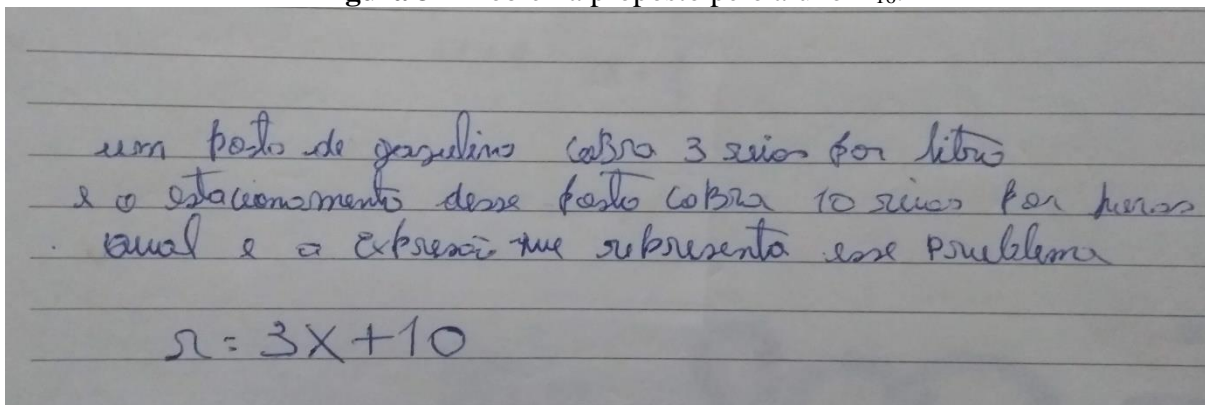 um posto de gasulina cobra 3 reias por litro
e o estacionamento desse posto coBra 10 reias por horas
qual e a expresão que representa esse Prueblema
r = 3x + 10